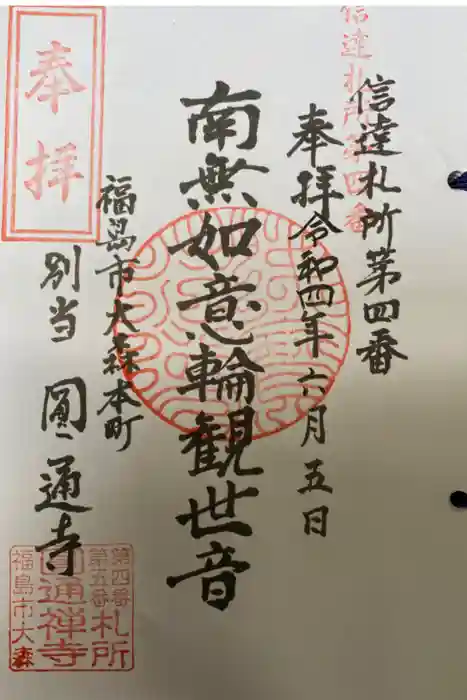 信達札所第四番
信達札所第四番
奉拝令和四年六月五日
南無如意輪観世音
福島市大森本町
別当 圓通寺
奉拝
第四番
第五番札所
圓通禅寺
福島市大森